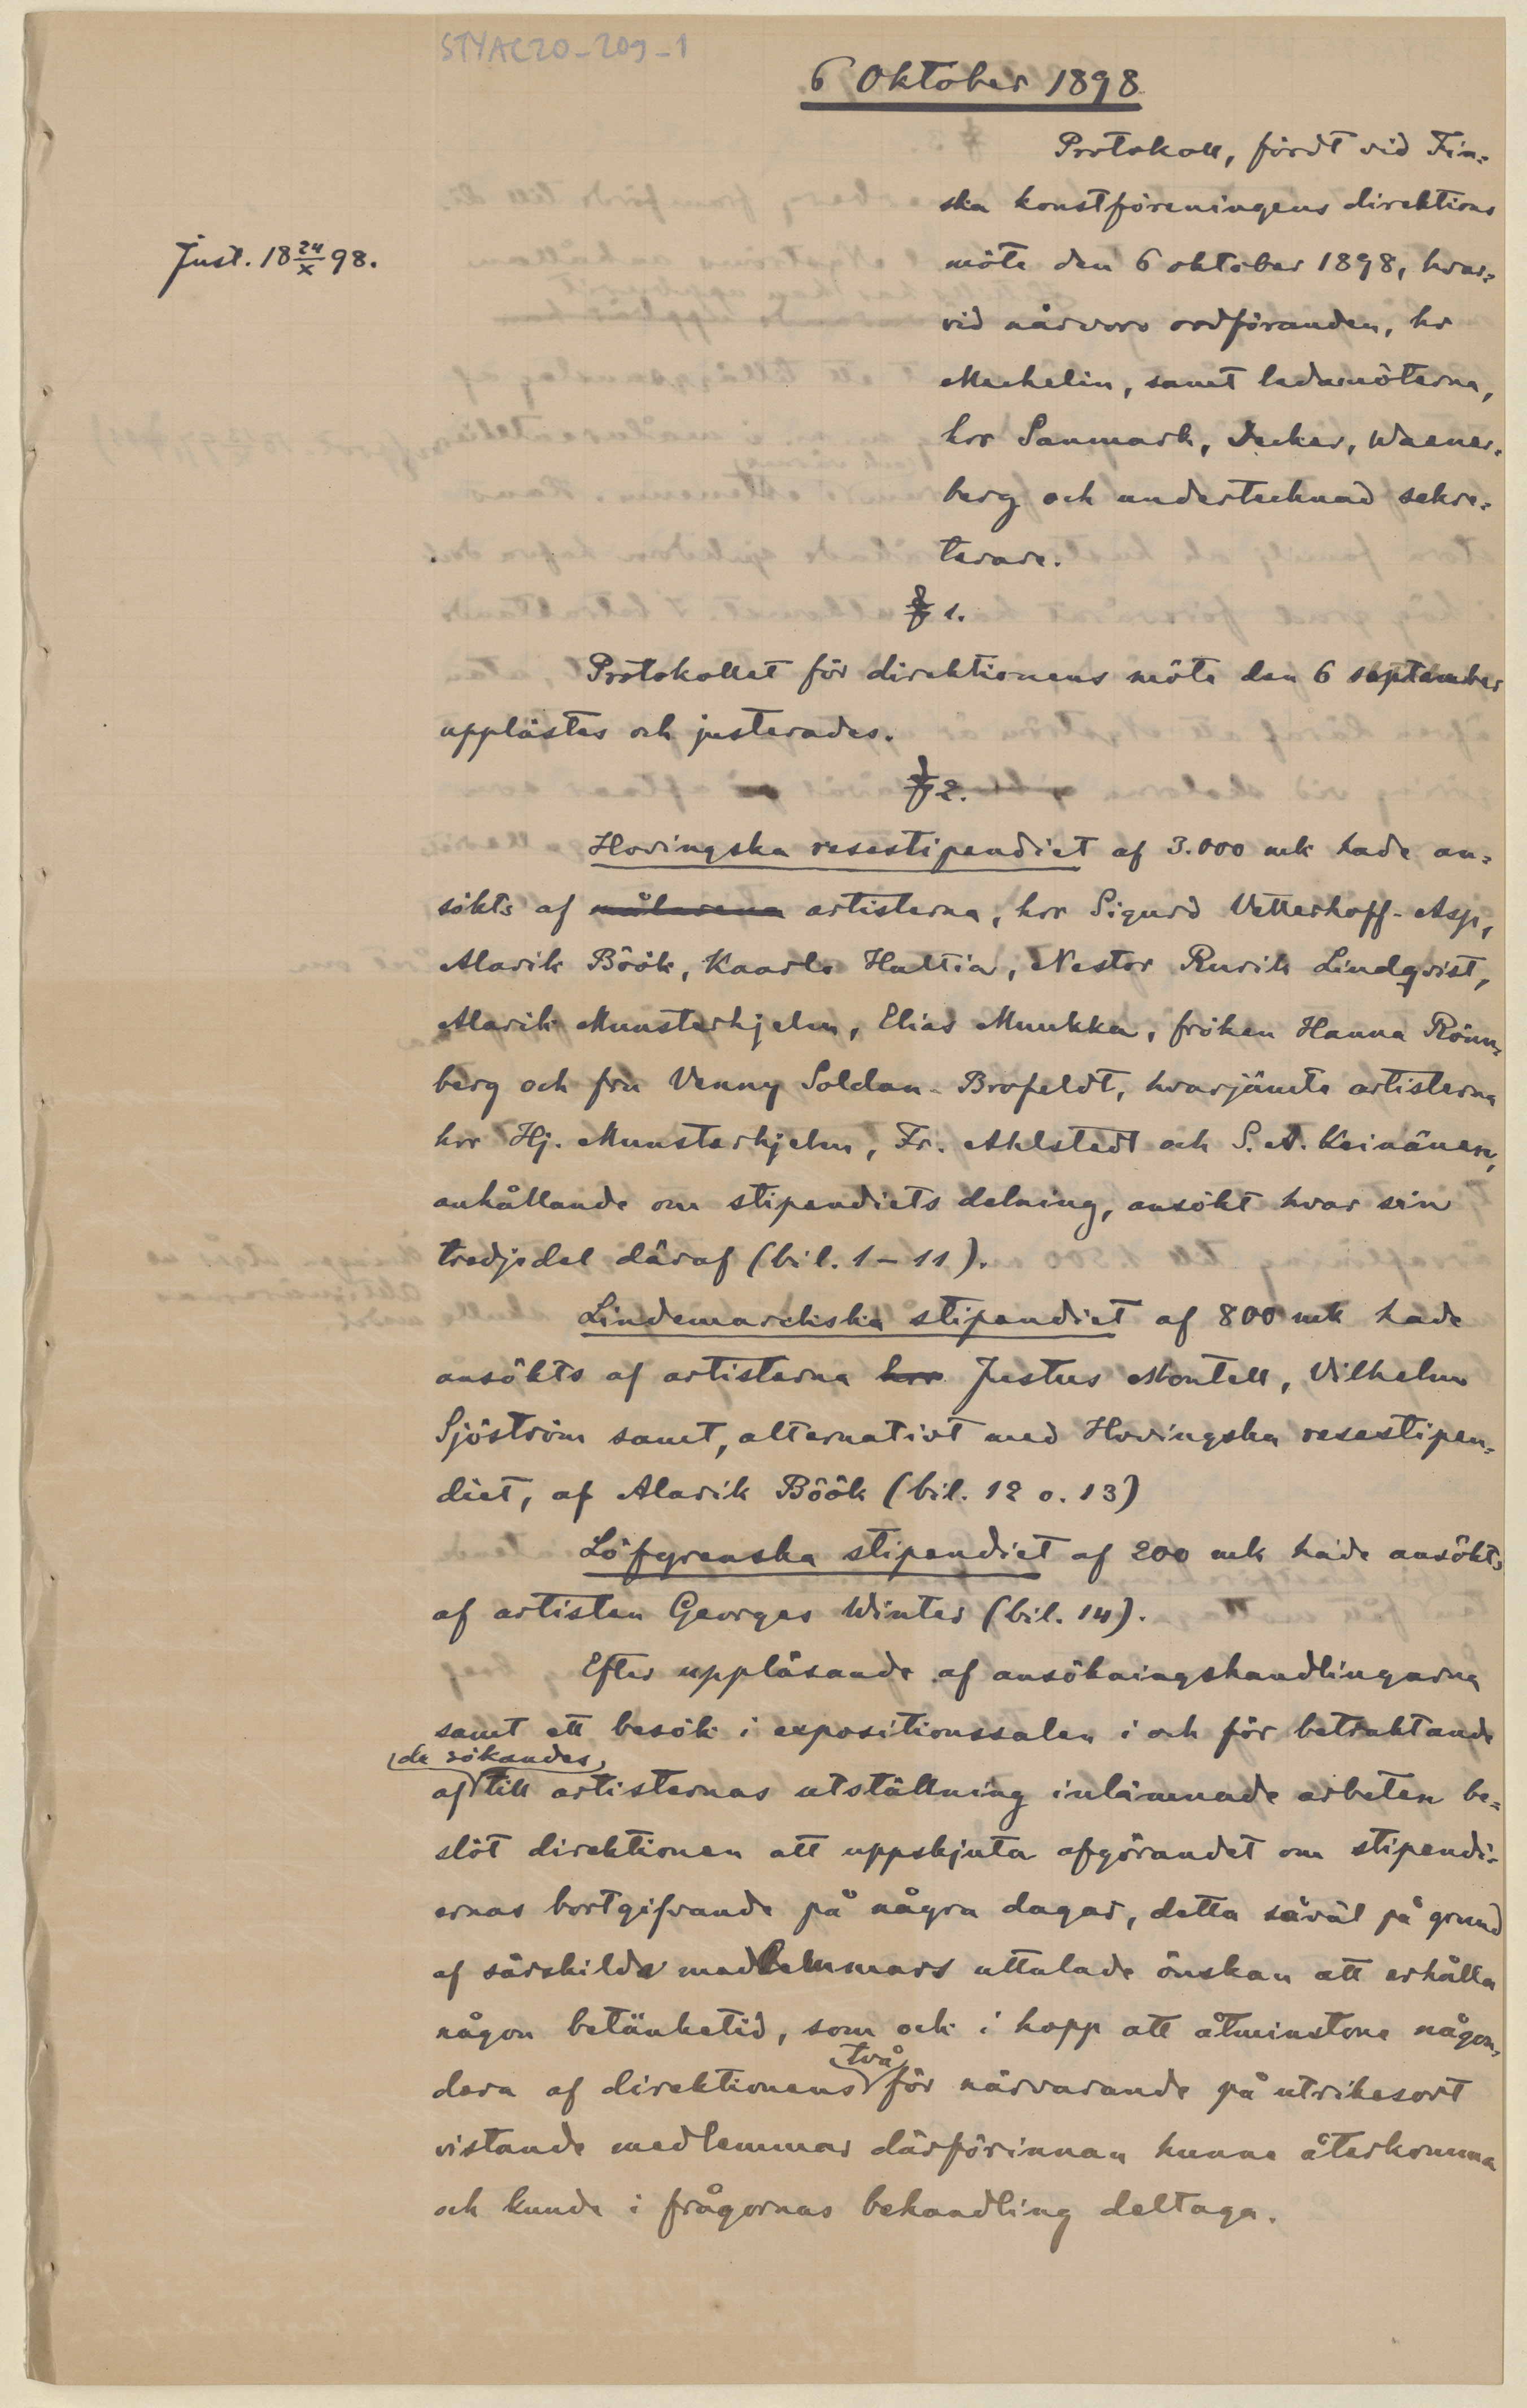 STYAC20-209-1
6 Oktober 1898
Protokoll, fördt vid Fin-
ska konstföreningens direktions
Just. 18 24/X 98.
möte den 6 oktober 1898, hvar-
vid närvoro ordföranden, hr
Mechelin, samt ledamöterna,
hrr Sanmark, Decker, Waener-
berg och undertecknad sekre-
terare.
§ 1.
Protokollet för direktionens möte den 6 september
upplästes och justerades.
§ 2.
Hovingska resestipendiet af 3.000 mk hade an-
sökts af målarena artisterna, hrr Sigurd Vetterhoff-Asp,
Alarik Böök, Kaarlo Haltia, Nestor Rurik Lindqvist,
Alarik Munsterhjelm, Elias Muukka, fröken Hanna Rönn-
berg och fru Venny Soldan-Brofeldt, hvarjämte artisterna
hrr Hj. Munsterhjelm, Fr. Ahlstedt och S. A. Keinänen,
anhållande om stipendiets delning, ansökt hvar sin
tredjedel däraf (bil. 1–11).
Lindemarckska stipendiet af 800 mk hade
ansökts af artisterna hrr Justus Montell, Vilhelm
Sjöström samt, alternativt med Hovingska resestipen-
diet, af Alarik Böök (bil. 12 o. 13)
Löfgrenska stipendiet af 200 mk hade ansökts
af artisten Georges Winter (bil. 14).
Efter uppläsande af ansökningshandlingarna
samt ett besök i expositionssalen i och för betraktande
de sökandes
af till artisternas utställning inlämnade arbeten be-
slöt direktionen att uppskjuta afgörandet om stipendi-
ernas bortgifvande på några dagar, detta såväl på grund
af särskilda medlemmars uttalade önskan att erhålla
någon betänketid, som ock i hopp att åtminstone någon-
två
dera af direktionens för närvarande på utrikesort
vistande medlemmar därförinnan hunne återkomma
och kunde i frågornas behandling deltaga.